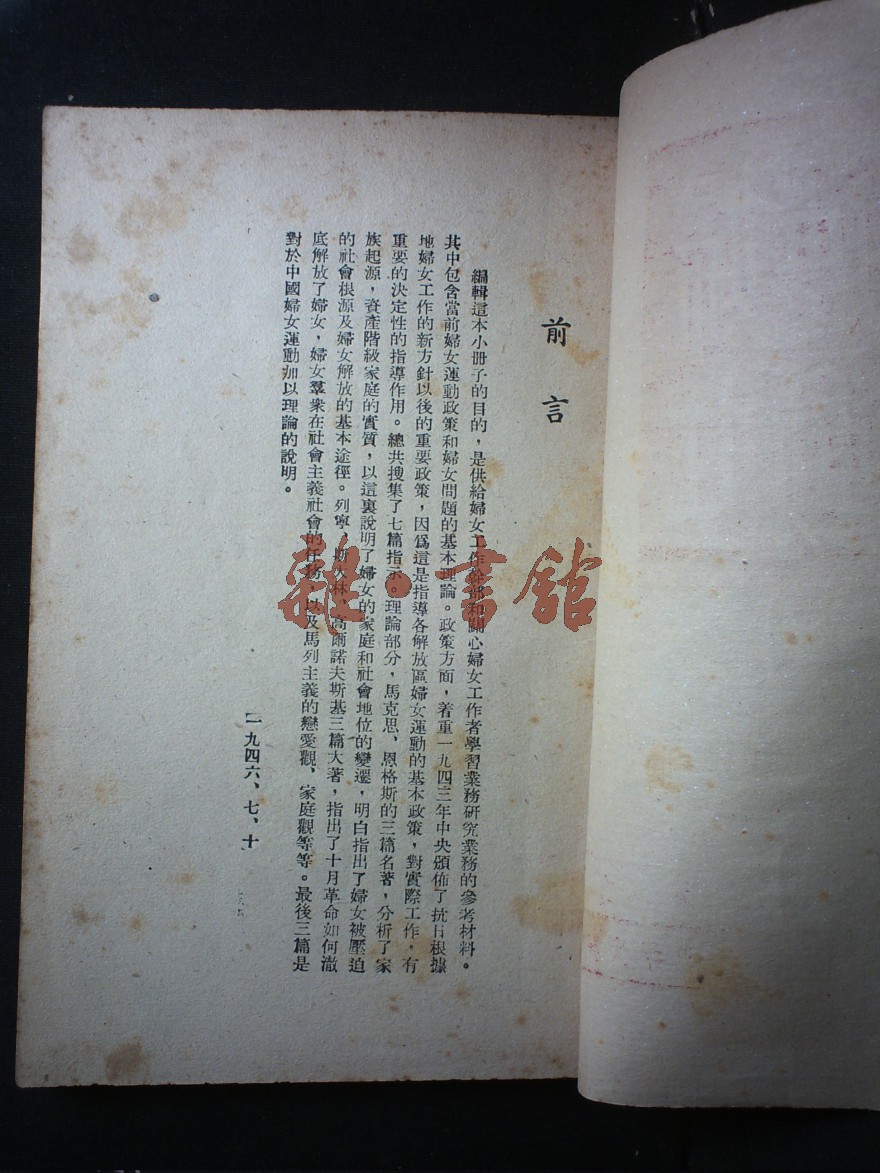 前言
編輯這本小册子的目的，是供給婦女工作幹部和關心婦女工作者學習業務研究業務的參考材料。
其中包含當前婦女運動政策和婦女問題的基本理論。政策方面，着重一九四三年中央頒佈了抗日根據
地婦女工作的新方針以後的重要政策，因爲這是指導各解放區婦女運動的基本政策，對實際工作，有
重要的決定性的指導作用。總共搜集了七篇指示。理論部分，馬克思，恩格斯的三篇名著，分析了家
族起源，資產階級家庭的實質，以這裏說明了婦女的家庭和社會地位的變遷，明白指出了婦女被壓迫
的社會根源及婦女解放的基本途徑。列寧，斯大林，高爾諾夫斯基三篇大著，指出了十月革命如何澈
底解放了婦女，婦女羣衆在社會主義社會的任務，以及馬列主義的戀愛觀、家庭觀等等。最後三篇是
對於中國婦女運動加以理論的說明。
一九四六、七、十
雜·書館